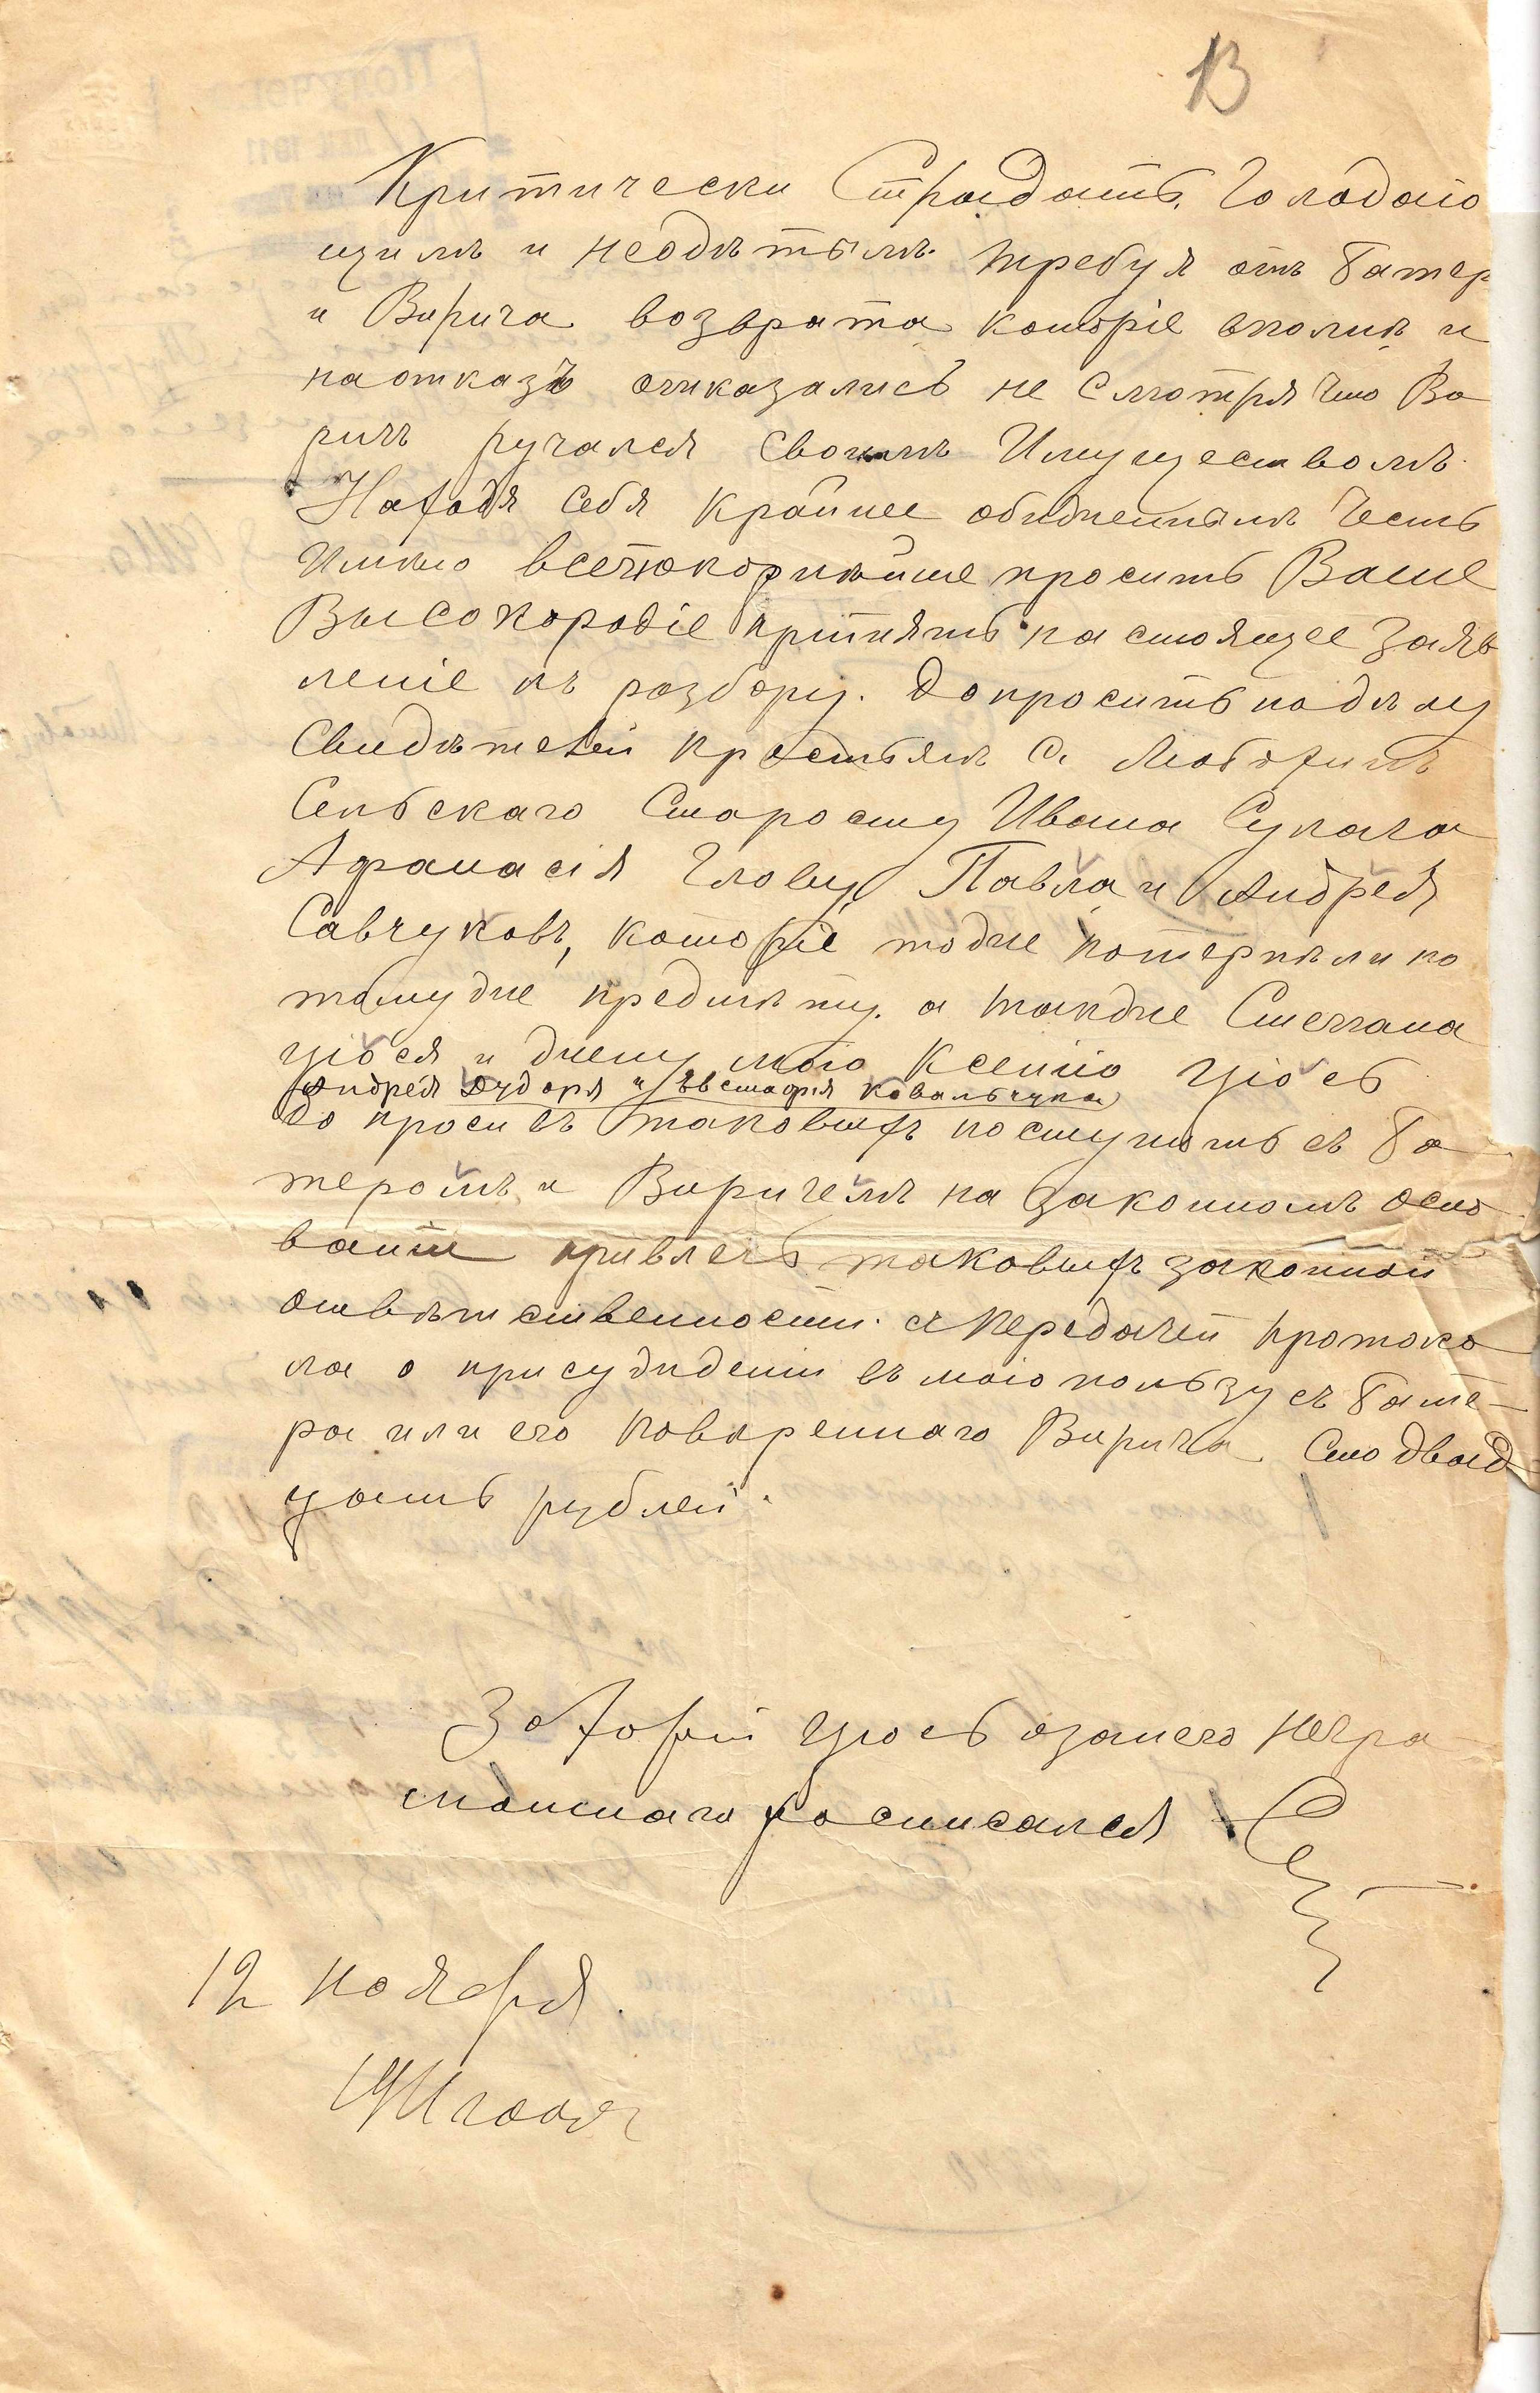 13
Критически Страдать, Голодаю
щимъ и неодѣтымъ требуя отъ Батер
и Вирича возврата которіе вполнѣ и
наотказъ отказались не смотря что Ви
ричъ ручался своимъ Имуществомъ.
Находя себя крайнее обидненнымъ Честь
Имѣю всепокорнѣйше просить Ваше
Высокородіе принять настоящее Заяв
леніе къ разбору. допросить подѣлу
Свидѣтелей крестьянъ С. Любохинъ
Сельскаго Старосту Ивана Сукача
Афанасія Глову, Павла и Андрея
Савчуковъ, которіе тодже потерпѣли по
томудже предмѣту. а такдже Степана
Цюся и джену мою Ксенію Цюсь
Андрея Дудоря и Евстафія Ковальчука
до просивъ таковыхъ поступить съ Ба
теромъ и Виричемъ на законномъ осно
ваніи привлечь таковыхъ законной
отвѣтственности. съ передачей протоко
ла о присудждении въ мою пользу съ Бате-
ра или его повѣреннаго Вирича Сто двад
цать рублей.
За Хорій Цюсь озамего негра
мотнаго росписался
12 ноября